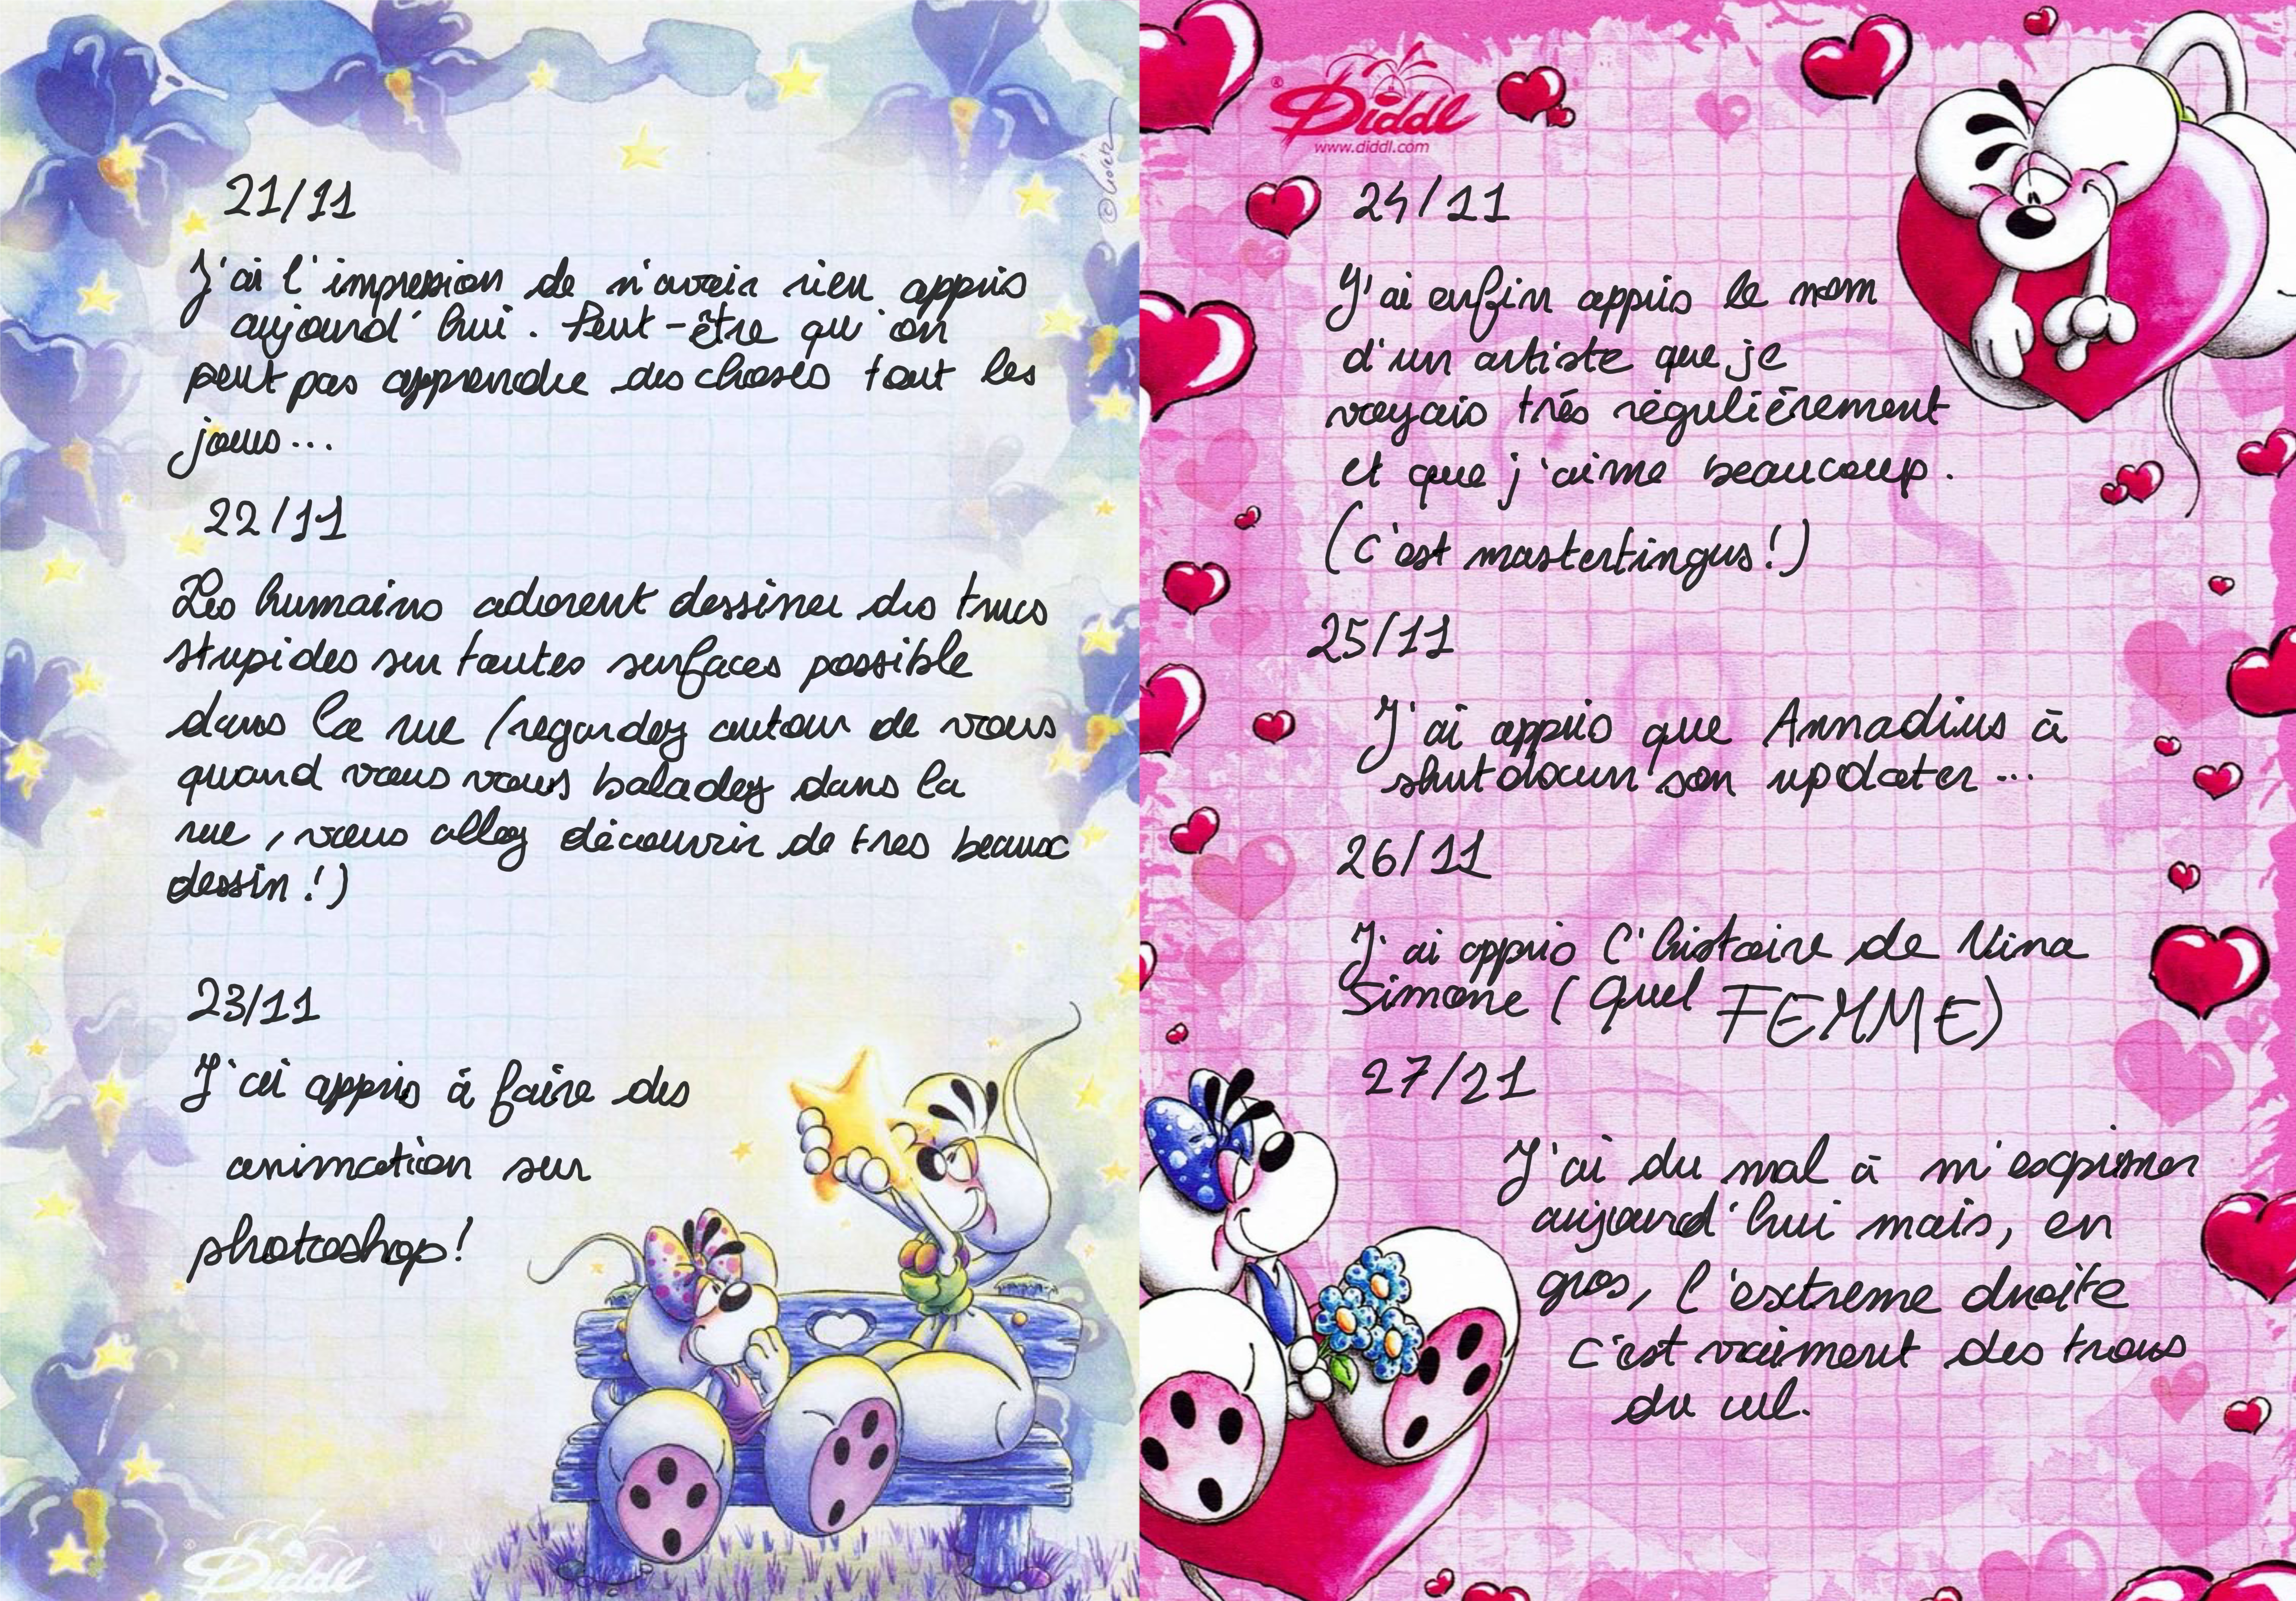 21/11
J'ai l'impression de n'avoir rien appris
aujourd'hui. Peut-être qu'on
peut pas apprendre des choses tout les
jours...
22/11
Les humains adorent dessiner des trucs
stupides sur toutes surfaces possible
dans la rue (regardez autour de vous
quand vous vous baladez dans la
rue, vous allez découvrir de tres beaux
dessin!)
23/11
J'ai appris à faire des
animation sur
photoshop!
Diddl
Diddl
www.diddl.com
24/11
J'ai enfin appris le nom
d'un artiste que je
voyais très régulièrement
et que j'aime beaucoup.
(c'est mastertingus!)
25/11
J'ai appris que Annadius à
shutdown son updater...
26/11
J'ai appris l'histoire de Nina
Simone (Quel FEMME)
27/21
J'ai du mal à m'exprimer
aujourd'hui mais, en
gros, l'extreme droite
c'est vraiment des trous
du cul.